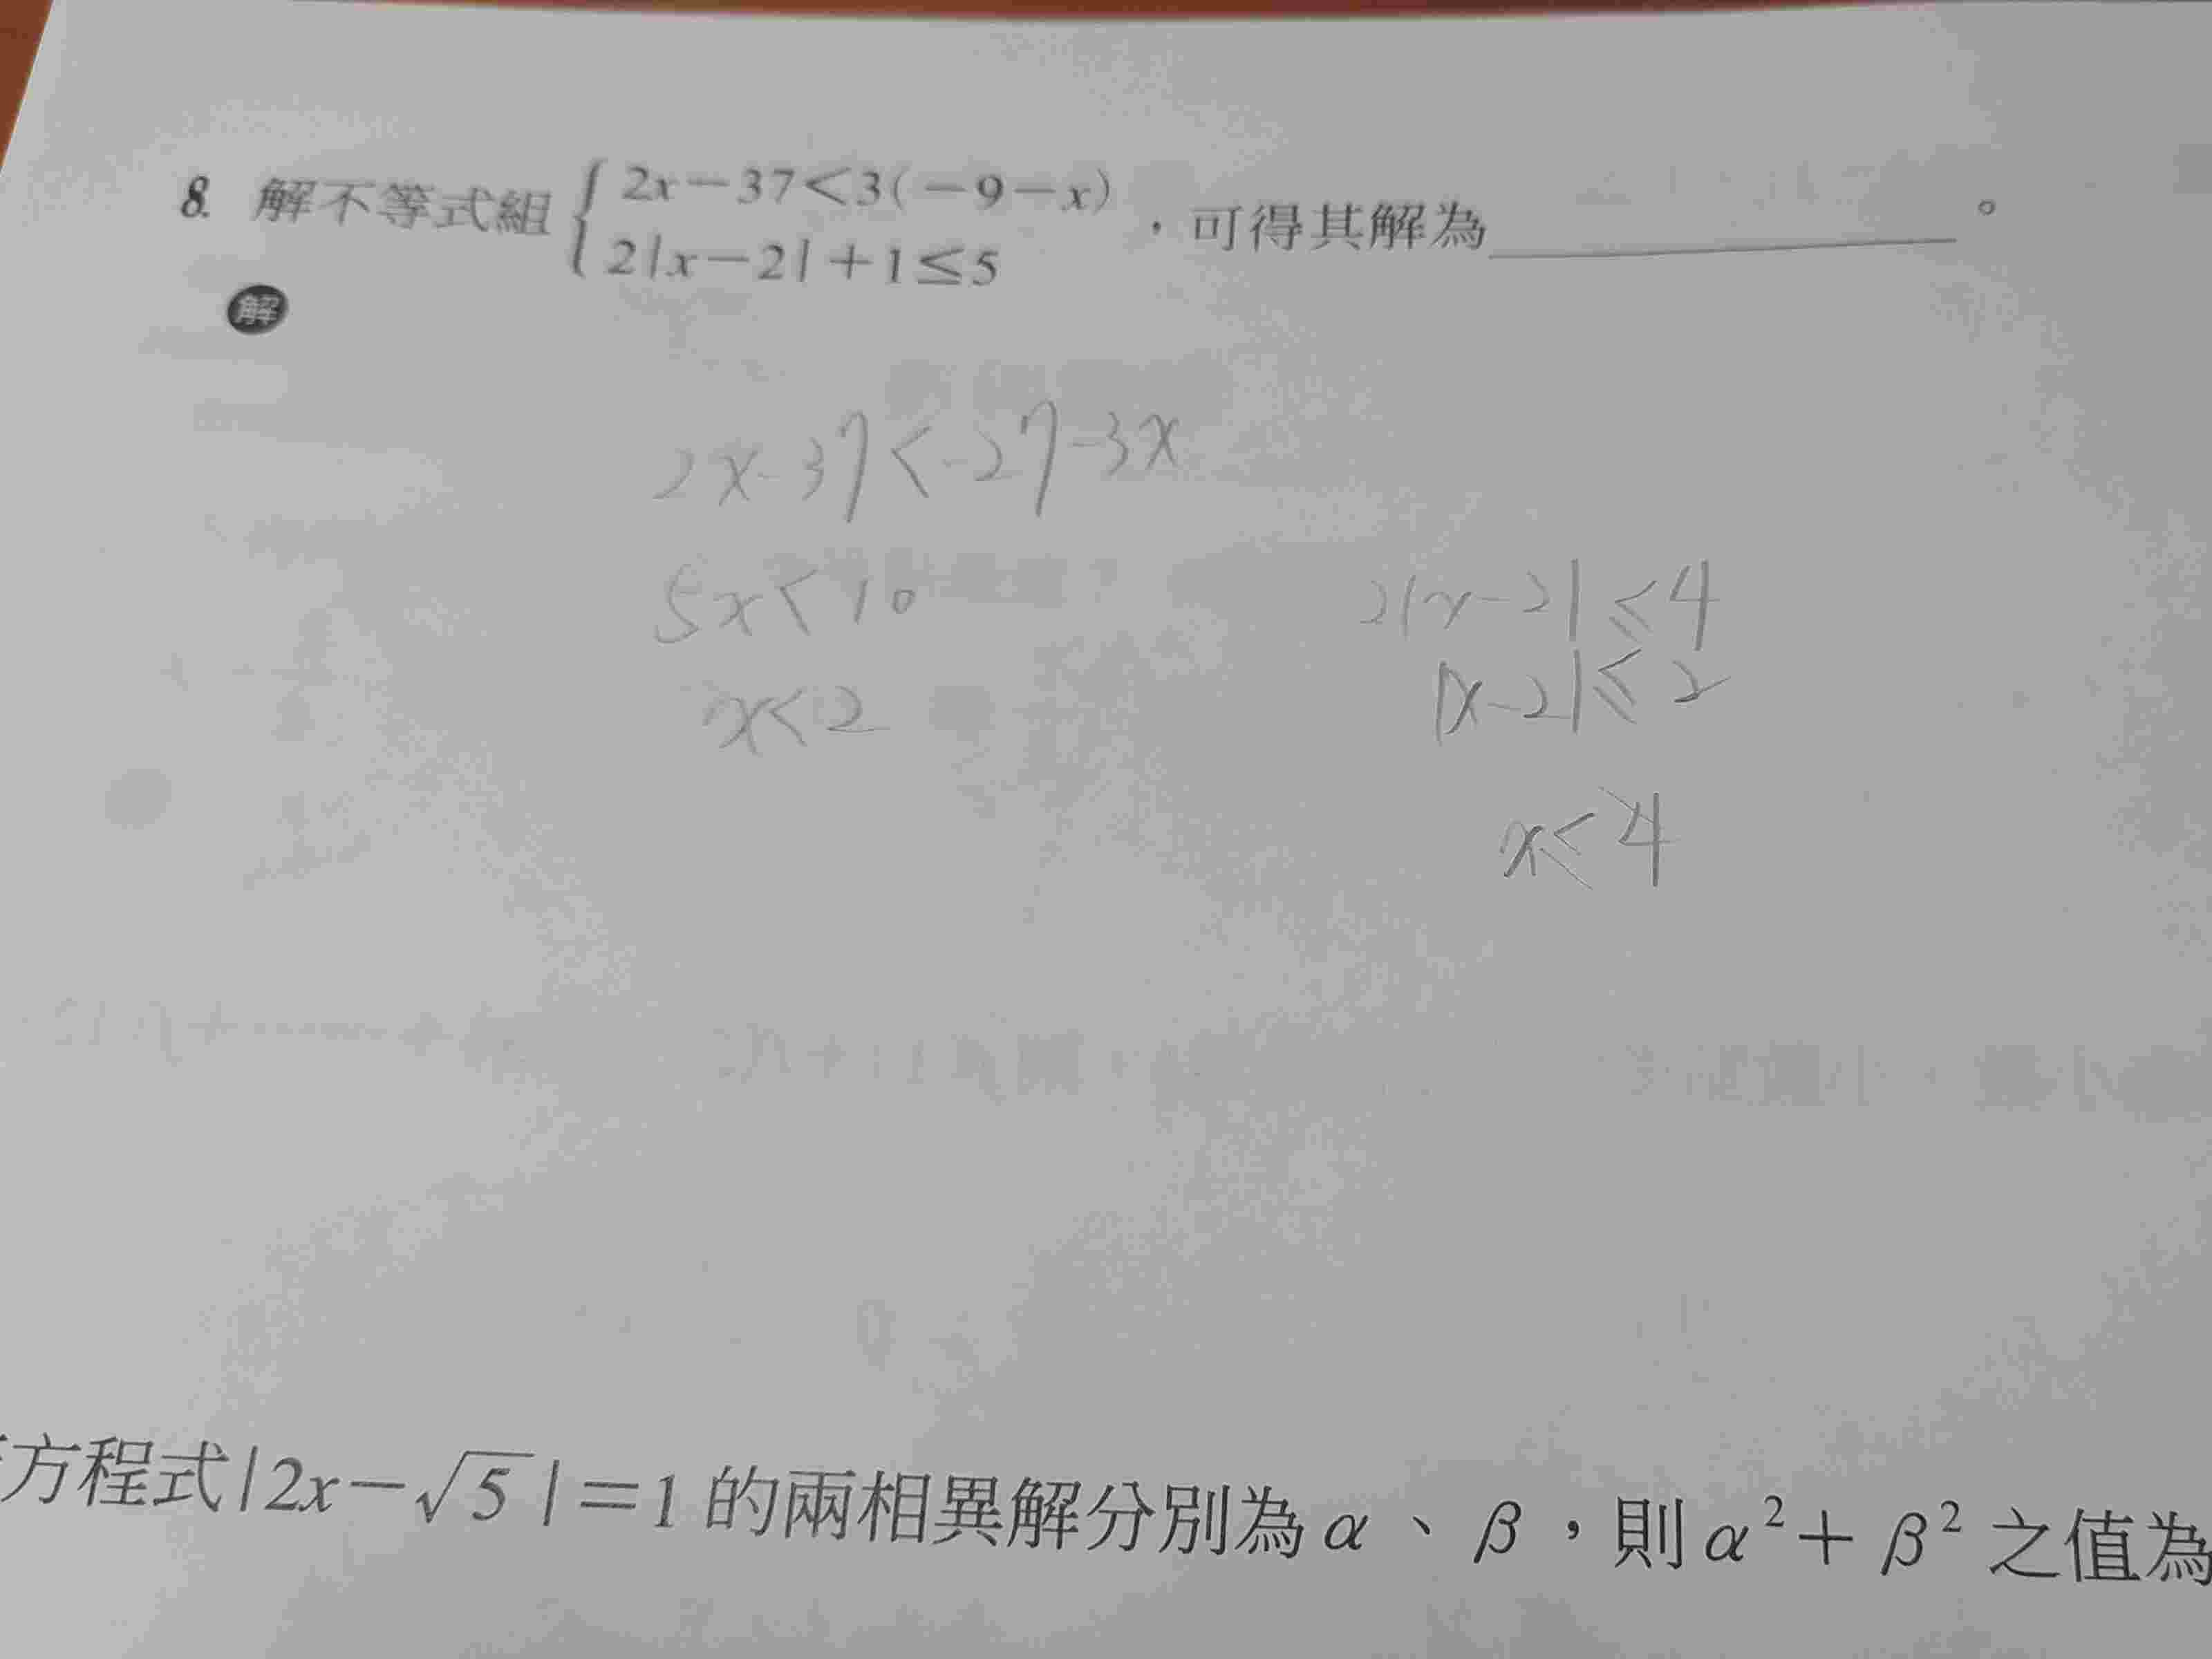 8. 解不等式組 { 2x－37＜3(－9－x)
2|x－2|＋1≤5 ，可得其解為________。
解
2x-37<-27-3x
5x<10
x<2
2|x-2|≤4
|x-2|≤2
x≤4
方程式|2x－√5|＝1 的兩相異解分別為 α、β，則 α²＋β² 之值為